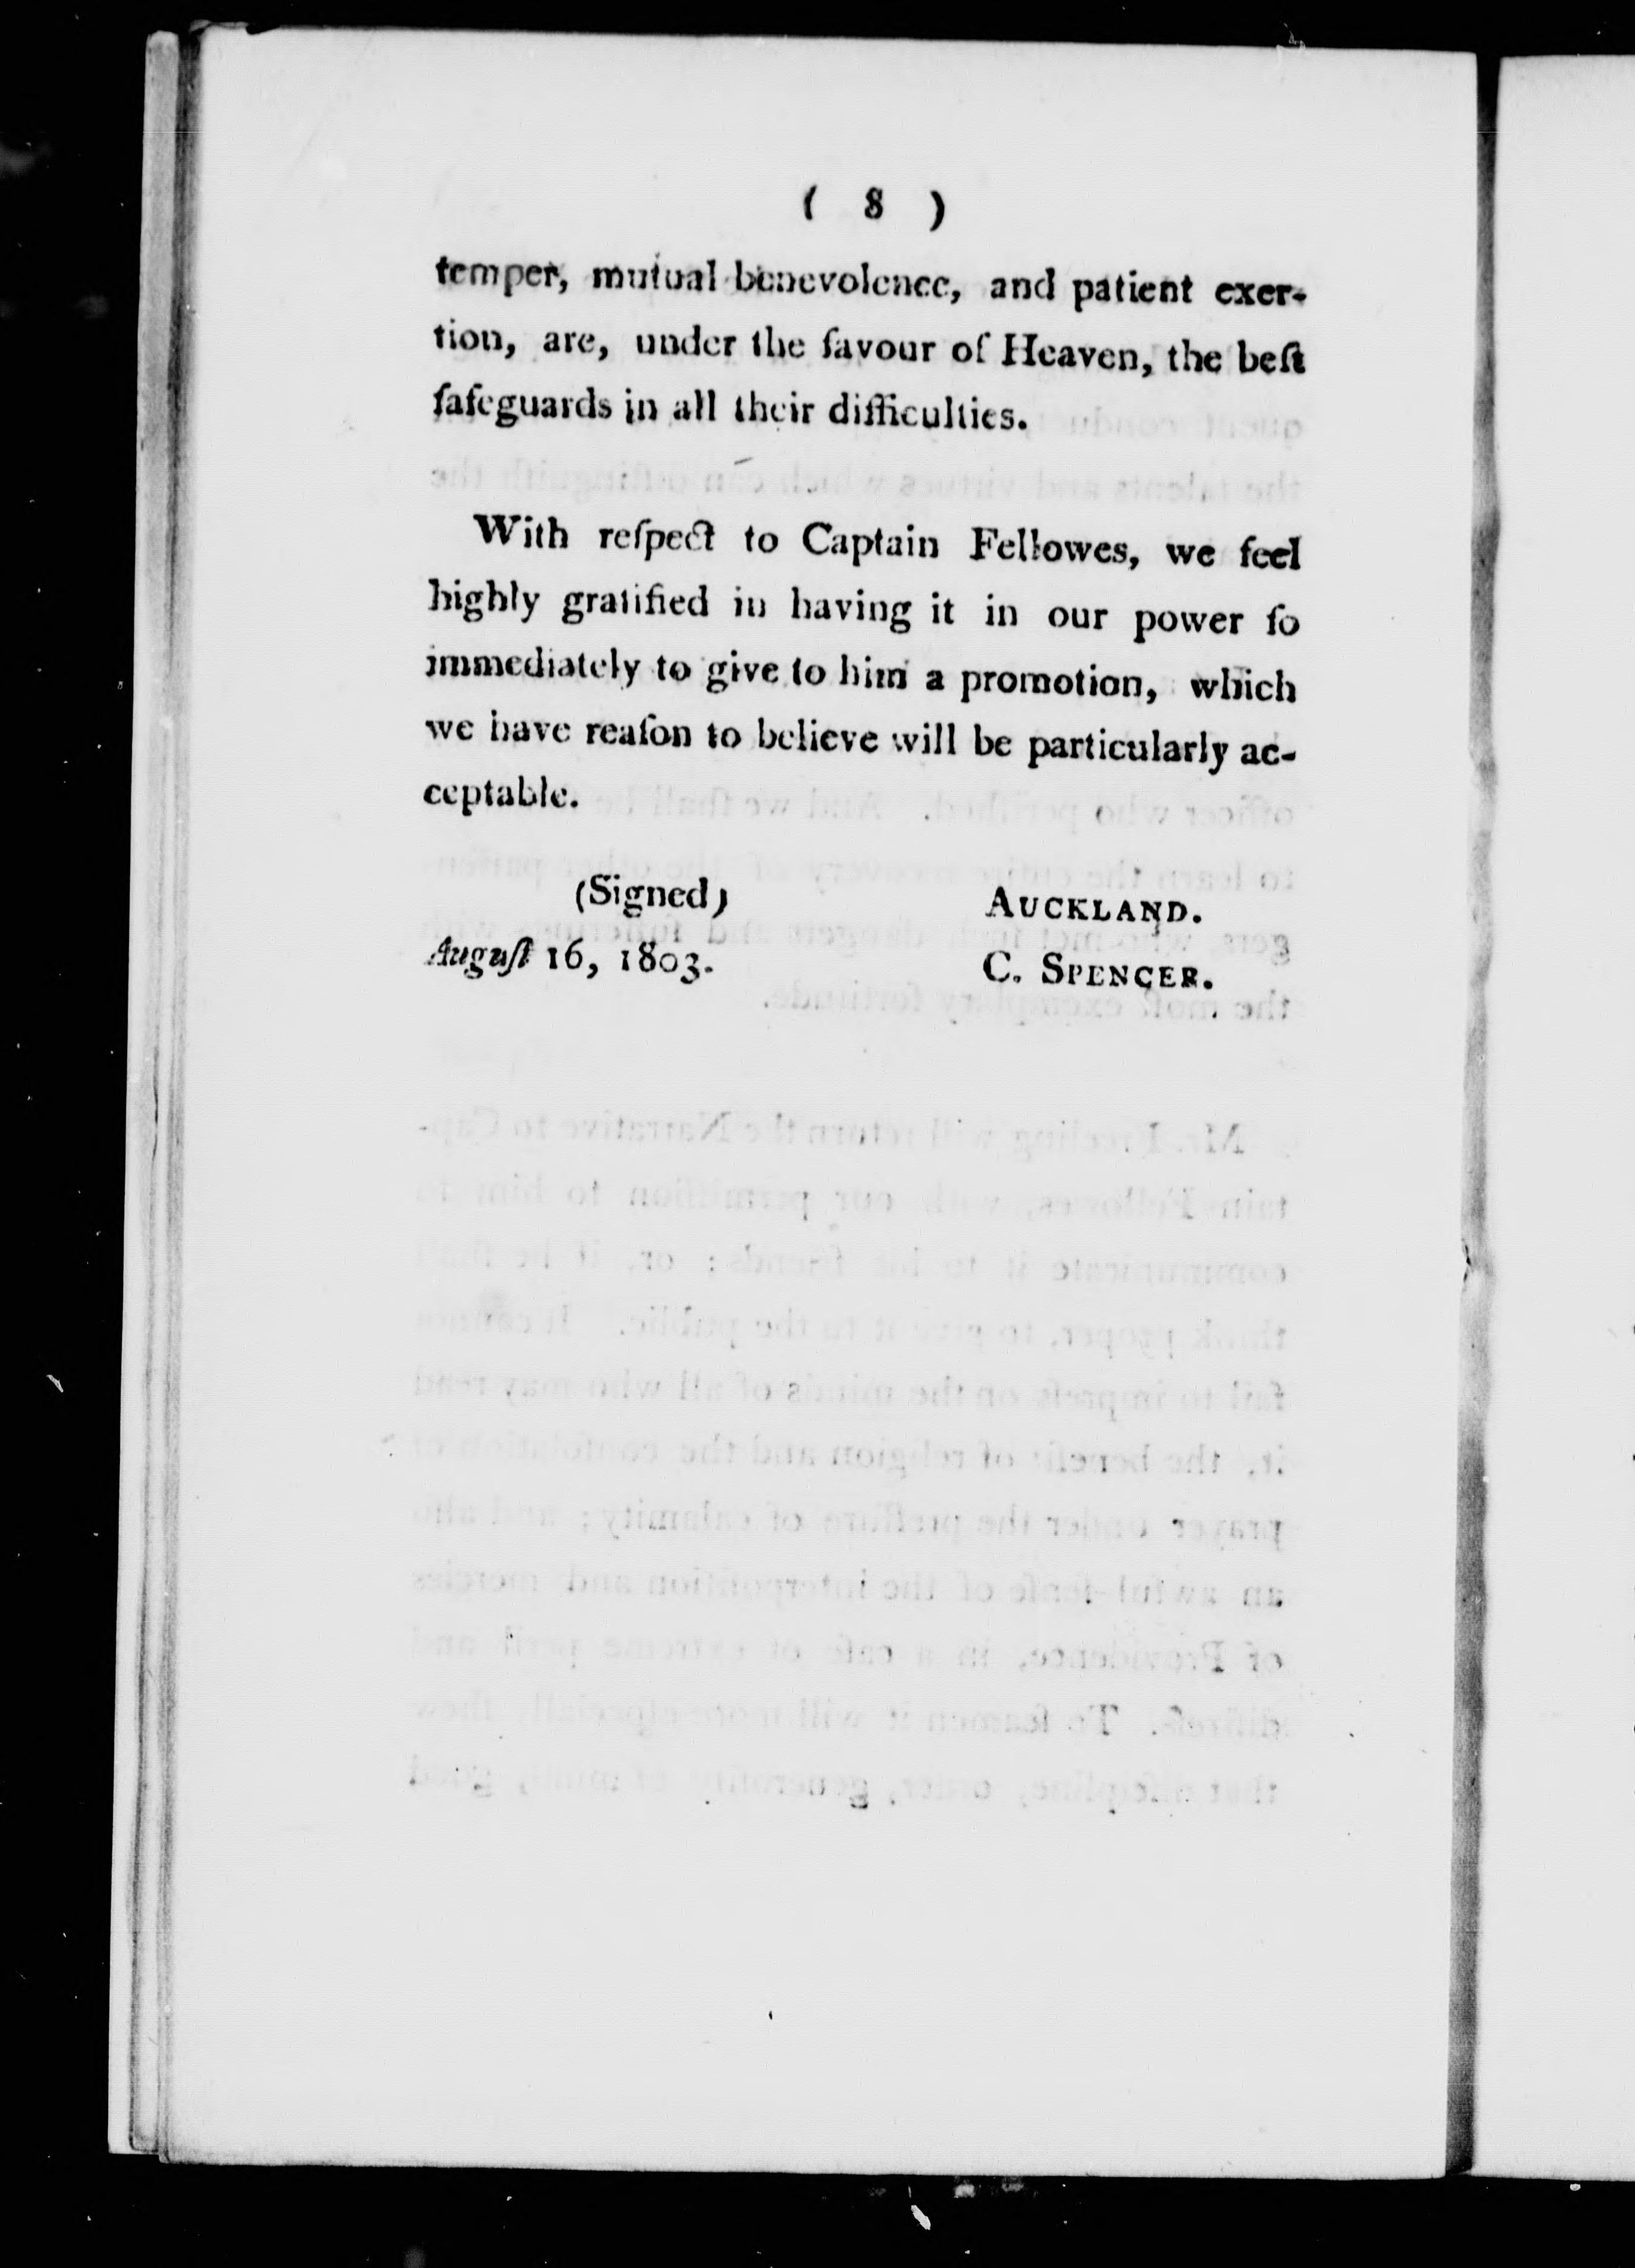 ( 8 )
temper, mutual benevolence, and patient exer-
tion, are, under the favour of Heaven, the beſt
ſafeguards in all their difficulties.
With reſpect to Captain Fellowes, we feel
highly gratified in having it in our power ſo
immediately to give to him a promotion, which
we have reaſon to believe will be particularly ac-
ceptable.
(Signed) AUCKLAND.
Auguſt 16, 1803. C. SPENCER.